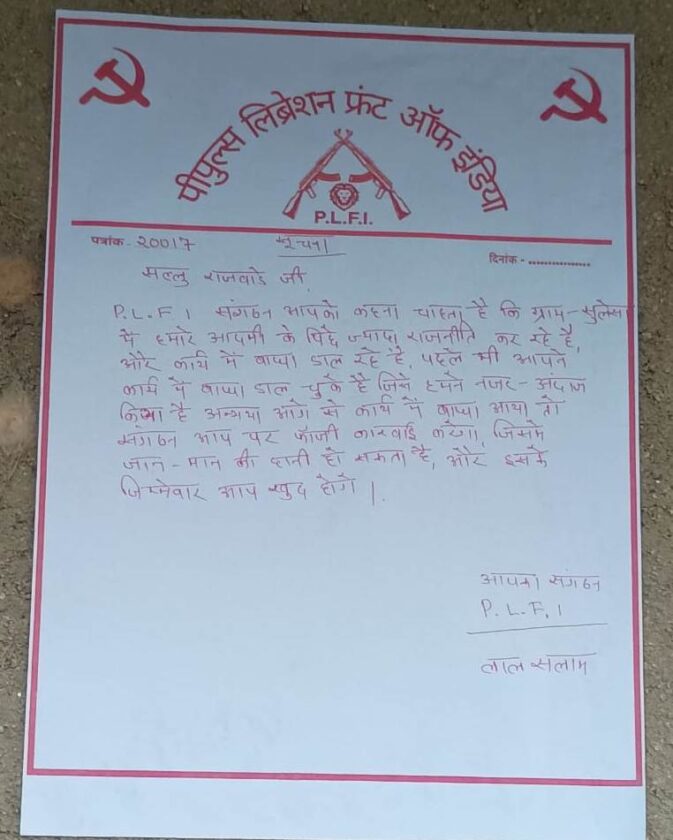 पीपुल्स लिब्रेशन फ्रंट ऑफ इंडिया
P.L.F.I.
पत्रांक- 20017
सूचना
दिनांक - ...............
मल्लु राजवाडे जी,
P.L.F.I संगठन आपको कहना चाहता है कि ग्राम-सुलेसा
में हमारे आदमी के पिछे ज्यादा राजनीति कर रहे है,
और कार्य में बाधा डाल रहे है, पहले भी आपने
कार्य में बाधा डाल चुके है जिसे हमने नजर-अंदाज
किया है अन्यथा आगे से कार्य में बाधा आया तो
संगठन आप पर फौजी कारवाई करेगा, जिसमे
जान-मान की हानी हो सकता है, और इसके
जिम्मेवार आप खुद होगें।
आपका संगठन
P.L.F.I
लाल सलाम